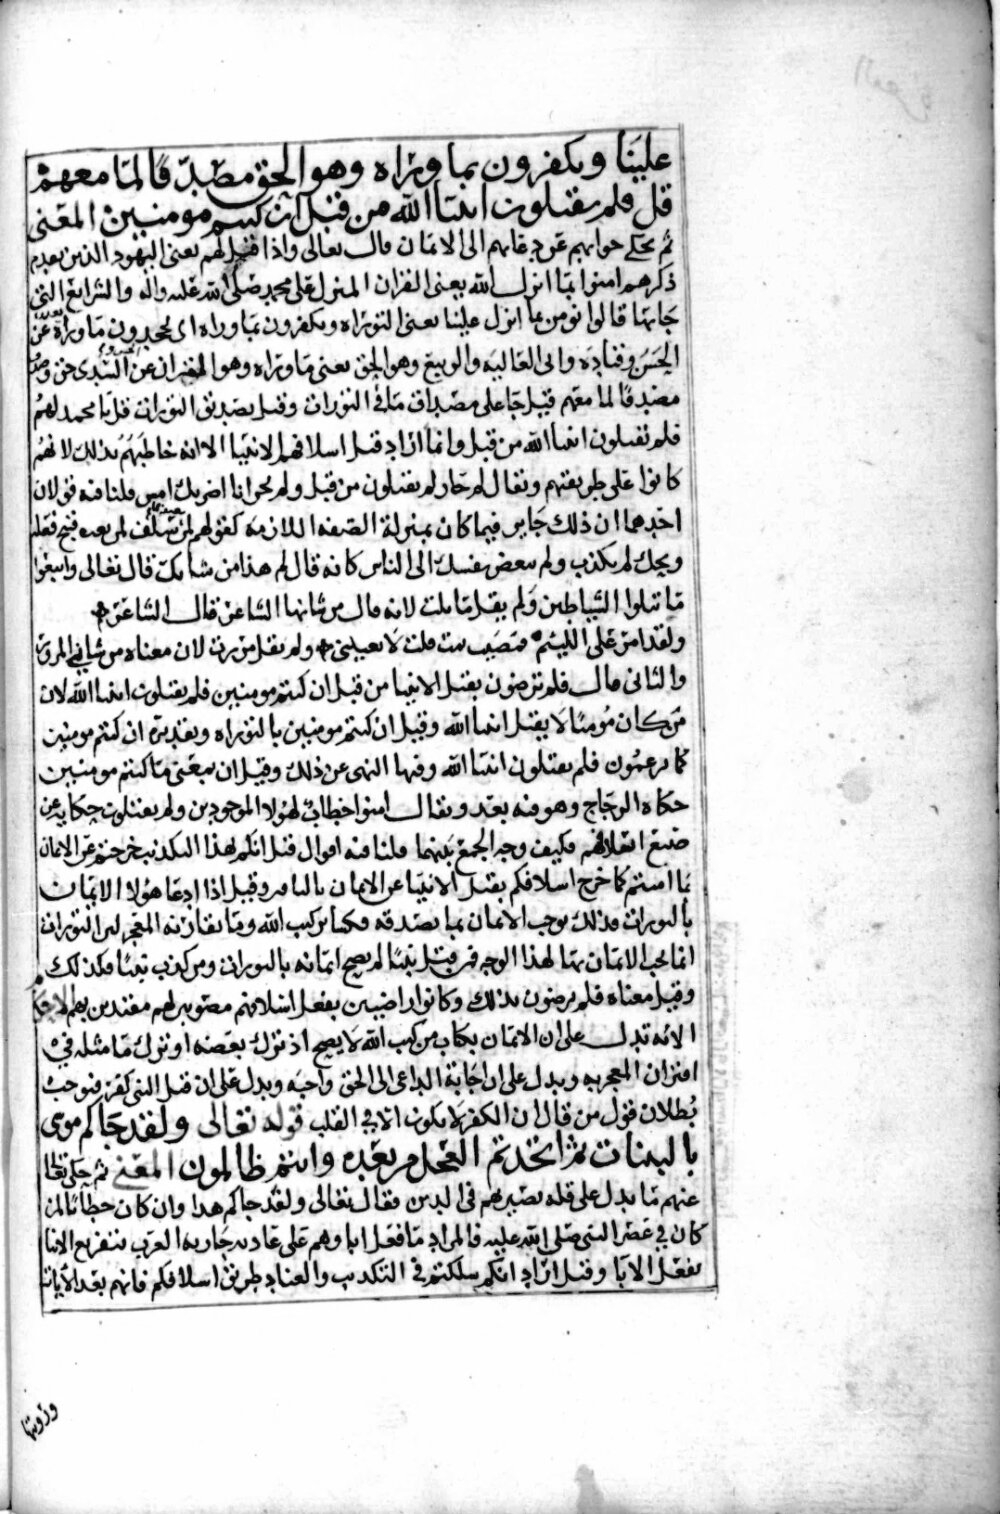 علينا ويكفرون بما وراه وهو الحق مصدقا لما معهم
قل فلم تقتلون انبيا الله من قبل ان كنتم مومنين المعنى
ثم حكى جوابهم عن دعايهم الى الايمان قال تعالى واذا قيل لهم يعنى اليهود الذين تقدم
ذكرهم امنوا بما انزل الله يعنى القران المنزل على محمد صلى الله عليه واله والشرايع التى
جا بها قالوا نومن بما انزل علينا يعنى التوراه ويكفرون بما وراه اى يجحدون ما وراه عن
الحسن وقتاده وابى العاليه والربيع وهو الحق يعنى ما وراه وهو القران عن السدى حق وصدق
مصدقا لما معهم قيل جا على مصداق ما فى التورات وقيل يصدق التورات قل يا محمد لهم
فلم تقتلون انبيا الله من قبل وانما اراد قتل اسلافهم الانبيا الا انه خاطبهم بذلك لانهم
كانوا على طريقتهم ويقال لم جاز لم تقتلون من قبل ولم يجز انا اضربك امس قلنا فيه قولان
احدهما ان ذلك جايز فيما كان بمنزلة الصفه اللازمه كقولهم لمن سلف لمن تعده قبح فعله
ويحك لم تكذب ولم تبغض نفسك الى الناس كانه قال لم هذا من شانك قال تعالى واتبعوا
ما تتلوا الشياطين ولم يقل ما تلت لانه قال من شانها قال الشاعر
ولقد امر على الليئم فمضيت ثمت قلت لا يعنينى ولم يقل مررت لان معناه من شانى المرور
والثانى قال فلم ترضون بقتل الانبيا من قبل ان كنتم مومنين فلم تقتلون انبيا الله لان
من كان مومنا لا يقتل انبيا الله وقيل ان كنتم مومنين بالتوراه وتقديره ان كنتم مومنين
كما تزعمون فلم تقتلون انبيا الله وفيها النهى عن ذلك وقيل ان بمعنى ما كنتم مومنين
حكاه الزجاج وهو فيه بعد ويقال امنوا خطاب لهولا الموجودين ولم تقتلون حكايه عن
صنع اسلافهم فكيف وجه الجمع بينهما قلنا فيه اقوال قيل انكم بهذا التكذيب خرجتم عن الايمان
بما امنتم كما خرج اسلافكم بقتل الانبيا عن الايمان وقيل اذا ادعا هولا الايمان
بالتورات فذلك يوجب الايمان بما تصدقه فكما بركب الله وما يقارنه المعجز لان التورات
انما يجب الايمان بها لهذا الوجه فمن قتل نبيا لم يصح ايمانه بالتورات ومن كذب نبيا فكذلك
وقيل معناه فلم ترضون بذلك وكانوا راضيين بفعل اسلافهم مصوبين لهم مقتدين بهم الاحكام
الايه تدل على ان الايمان بكتاب من كتب الله لا يصح اذ ترك بعضه او ترك ما مثله فى
اقتران المعجز به ويدل على ان اجابة الداعى الى الحق واجبه ويدل على ان قتل النبى كفر فيوجب
بطلان قول من قال ان الكفر لا يكون الا فى القلب قوله تعالى ولقد جاكم موسى
بالبينات ثم اتخذتم العجل من بعده وانتم ظالمون المعنى ثم حكى تعالى
عنهم ما يدل على قله بصيرتهم فى الدين فقال تعالى ولقد جاكم هذا وان كان خطابا لمن
كان فى عصر النبى صلى الله عليه فالمراد ما فعل اباوهم على عاده جاريه العرب تقريع الابنا
بفعل الابا وقيل اراد انكم سلكتم فى التكذيب والعناد طريق اسلافكم فانهم بعد الايات
ورويتها